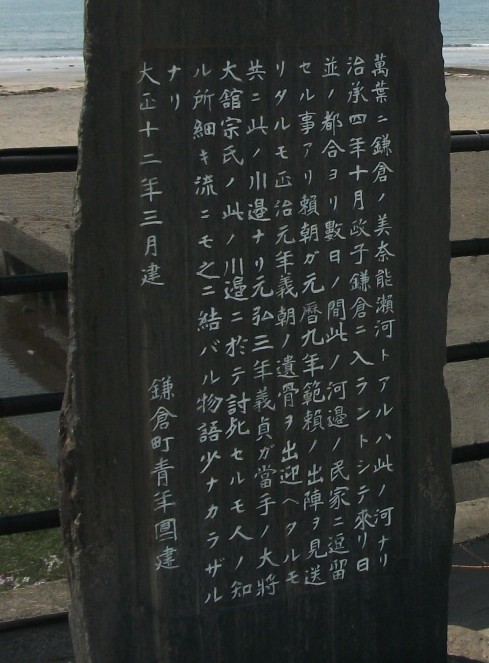 萬葉ニ鎌倉ノ美奈能瀬河トアルハ此ノ河ナリ
治承四年十月政子鎌倉ニ入ラントシテ來リ日
並ノ都合ヨリ數日ノ間此ノ河邊ノ民家ニ逗留
セル事アリ頼朝ガ元暦九年範頼ノ出陣ヲ見送
リタルモ正治元年義朝ノ遺骨ヲ出迎ヘタルモ
共ニ此ノ川邊ナリ元弘三年義貞ガ當手ノ大將
大舘宗氏ノ此ノ川邊ニ於テ討死セルモ人ノ知
ル所細キ流ニモ之ニ結バル物語少ナカラザル
ナリ
大正十二年三月建
鎌倉町青年團建